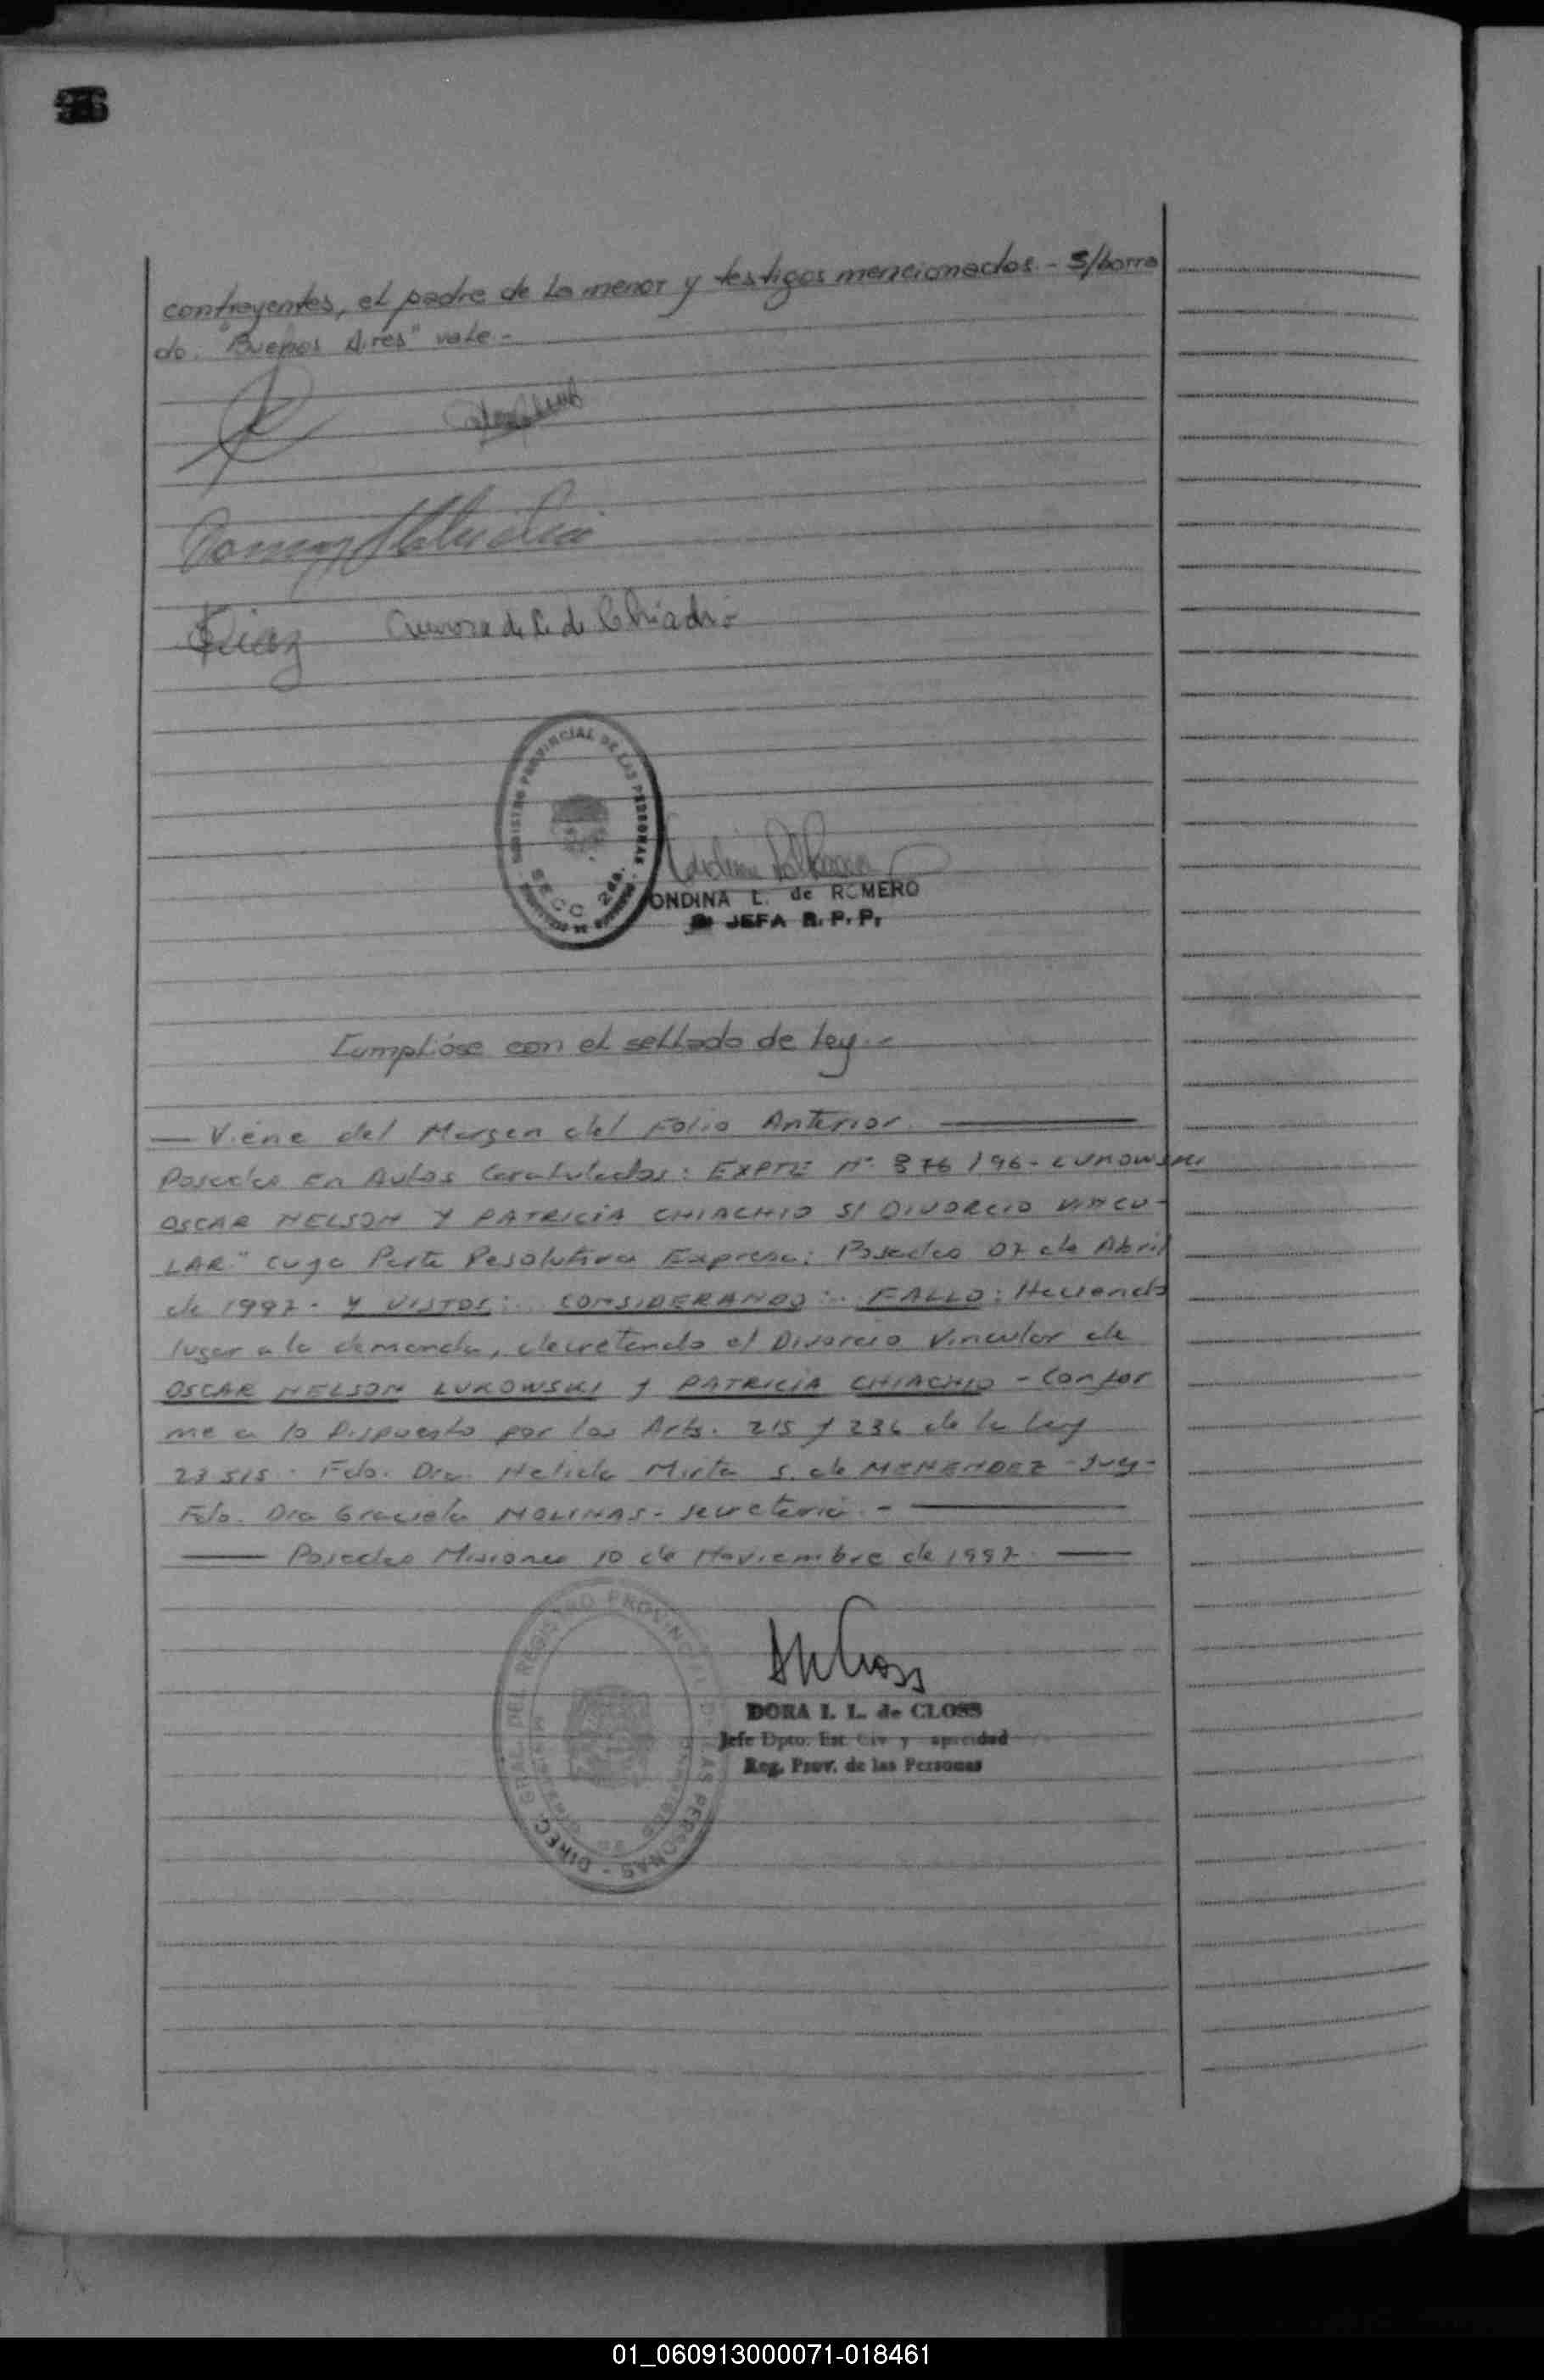 contrayentes, el padre de la menor y testigos mencionados.- S/borra
do. "Buenos Aires" vale.-
Diaz
REGISTRO PROVINCIAL DE LAS PERSONAS
SECC 2da.
ONDINA L. de ROMERO
JEFA R. P. P.
Cumplióse con el sellado de ley.-
— Viene del Margen del Folio Anterior.
Posadas en Autos Caratulados: EXPTE Nº 876/96- LUKOWSKI
OSCAR NELSON Y PATRICIA CHIACHIO S/ DIVORCIO VINCU-
LAR." cuya Parte Resolutiva Expresa: Posadas 07 de Abril
de 1997. Y VISTOS:.. CONSIDERANDO:.. FALLO: Haciendo
lugar a la demanda, decretando el Divorcio Vincular de
OSCAR NELSON LUKOWSKI y PATRICIA CHIACHIO - Confor
me a lo Dispuesto por los Arts. 215 y 236 de la ley
23515. Fdo. Dra. Nelida Mirta S. de MENENDEZ - Juez-
Fdo. Dra Graciela MOLINAS- Secretaria.-
Posadas Misiones 10 de Noviembre de 1997.
DIREC. GRAL. DEL REGISTRO PROVINCIAL DE LAS PERSONAS
DORA I. L. de CLOSS
Jefe Dpto. Est. Civ y apacidad
Reg. Prov. de las Personas
01_060913000071-018461